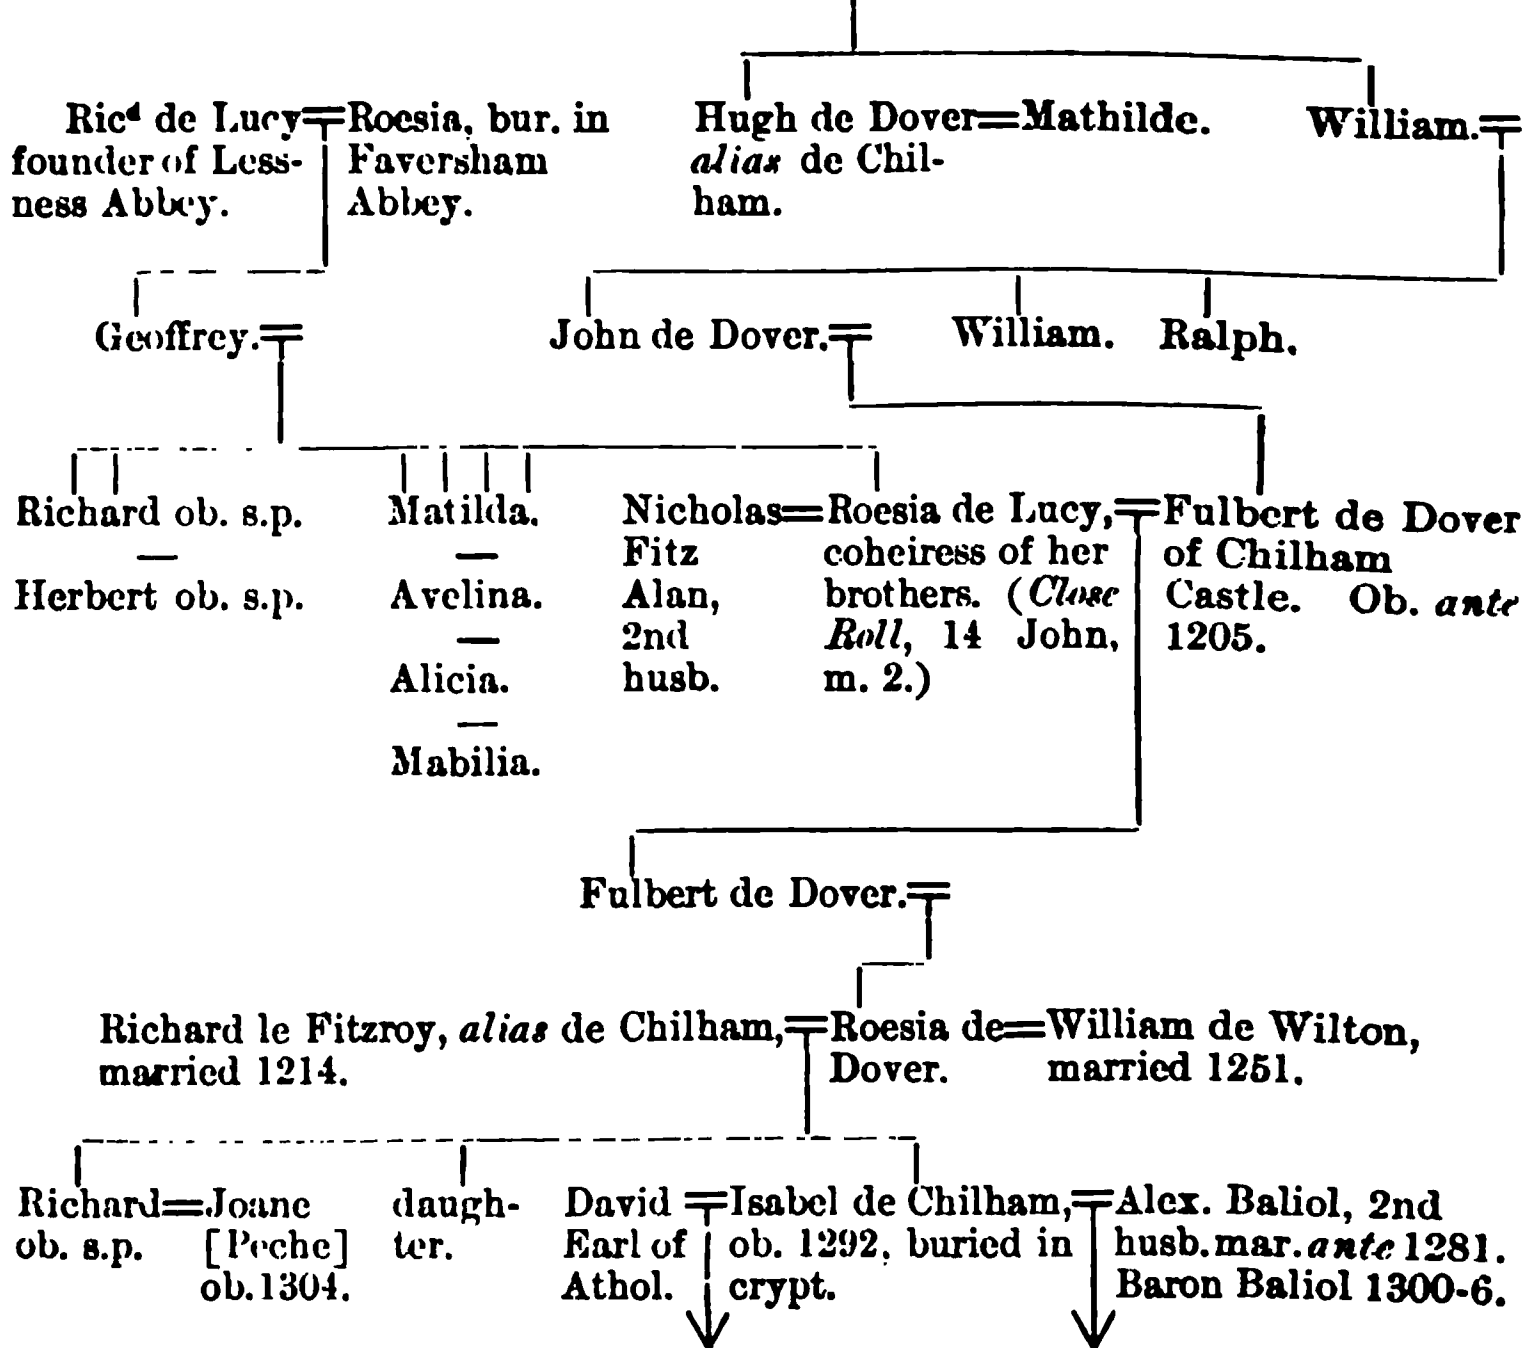 Ricᵈ de Lucy=Roesia, bur. in
founder of Less- Faversham
ness Abbey. Abbey.
Hugh de Dover=Mathilde.
alias de Chil-
ham.
William.=
Geoffrey.=
John de Dover.=
William.
Ralph.
Richard ob. s.p.
—
Herbert ob. s.p.
Matilda.
—
Avelina.
—
Alicia.
—
Mabilia.
Nicholas=
Fitz
Alan,
2nd
husb.
Roesia de Lucy,=
coheiress of her
brothers. (Close
Roll, 14 John,
m. 2.)
Fulbert de Dover
of Chilham
Castle. Ob. ante
1205.
Fulbert de Dover.=
Richard le Fitzroy, alias de Chilham,=
married 1214.
Roesia de=
Dover.
William de Wilton,
married 1251.
Richard=
ob. s.p.
Joane
[Peche]
ob. 1304.
daugh-
ter.
David=
Earl of
Athol.
Isabel de Chilham,=
ob. 1292, buried in
crypt.
Alex. Baliol, 2nd
husb. mar. ante 1281.
Baron Baliol 1300-6.